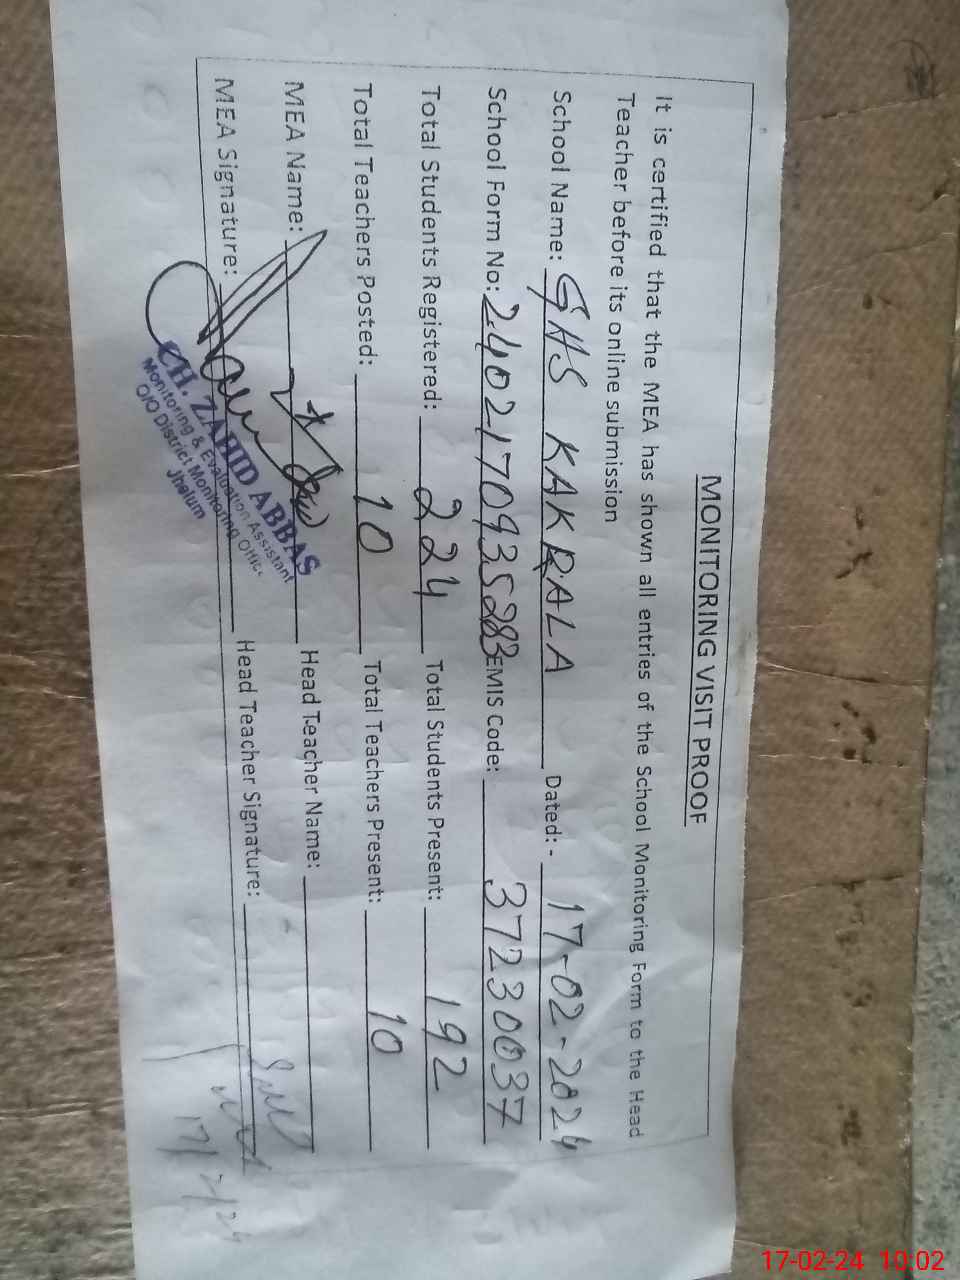 MONITORING VISIT PROOF
It is certified that the MEA has shown all entries of the School Monitoring Form to the Head
Teacher before its online submission
School Name: GHS KAKRALA Dated: - 17-02-2024
School Form No: 2402170935283 EMIS Code: 37230037
Total Students Registered: 224 Total Students Present: 192
Total Teachers Posted: 10 Total Teachers Present: 10
MEA Name: Head Teacher Name:
MEA Signature: Head Teacher Signature:
CH. ZAHID ABBAS
Monitoring & Evaluation Assistant
O/O District Monitoring Office
Jhelum
17-02-24 10:02